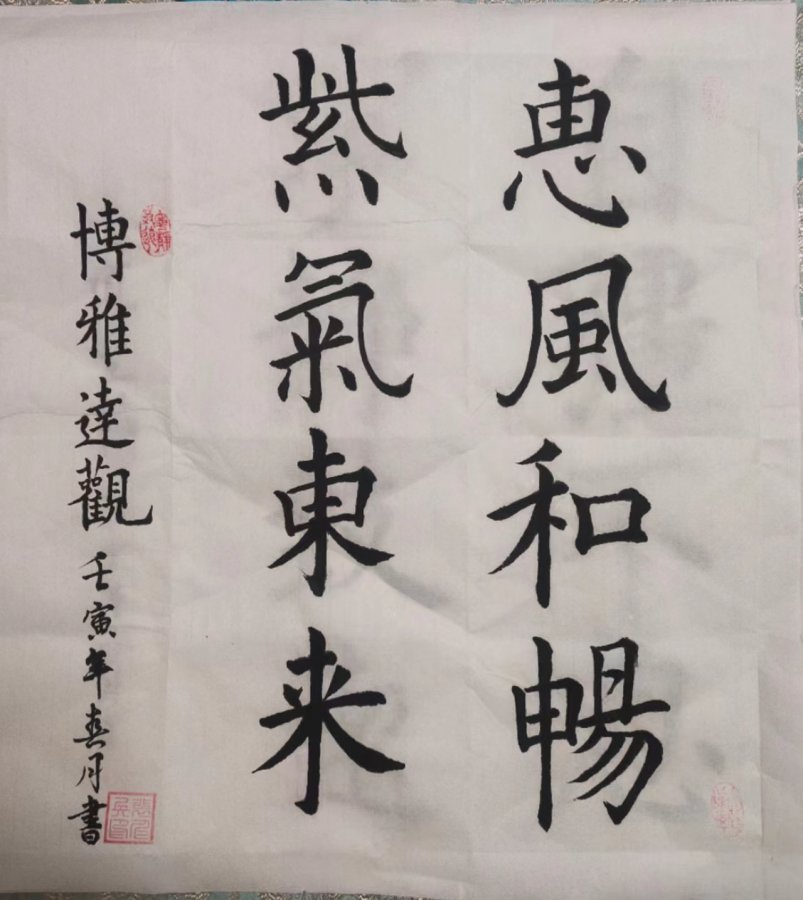 恵風和暢
紫氣東来
博雅達觀
壬寅年春月書